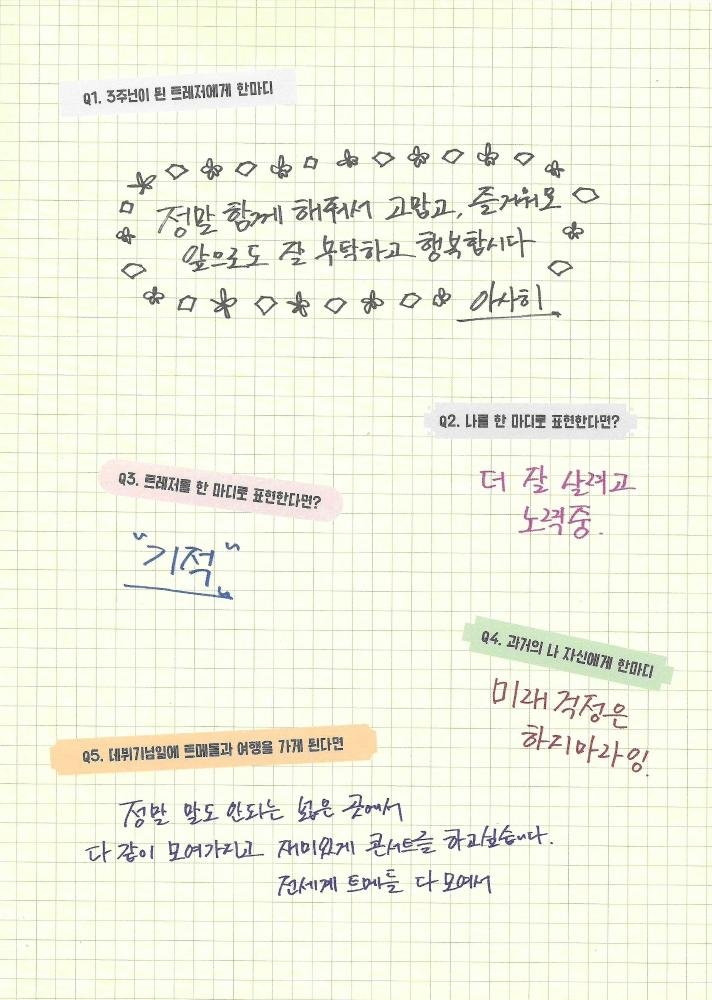 Q1. 3주년이 된 트레저에게 한마디
정말 함께 해줘서 고맙고, 즐거워모
앞으로도 잘 부탁하고 행복합시다
아사히
Q2. 나를 한 마디로 표현한다면?
더 잘 살려고
노력중.
Q3. 트레저를 한 마디로 표현한다면?
"기적"
Q4. 과거의 나 자신에게 한마디
미래 걱정은
하지마라잉!
Q5. 데뷔기념일에 트메들과 여행을 가게 된다면
정말 말도 안되는 넓은 곳에서
다 같이 모여가지고 재미있게 콘서트를 하고싶습니다.
전세계 트메들 다 모여서